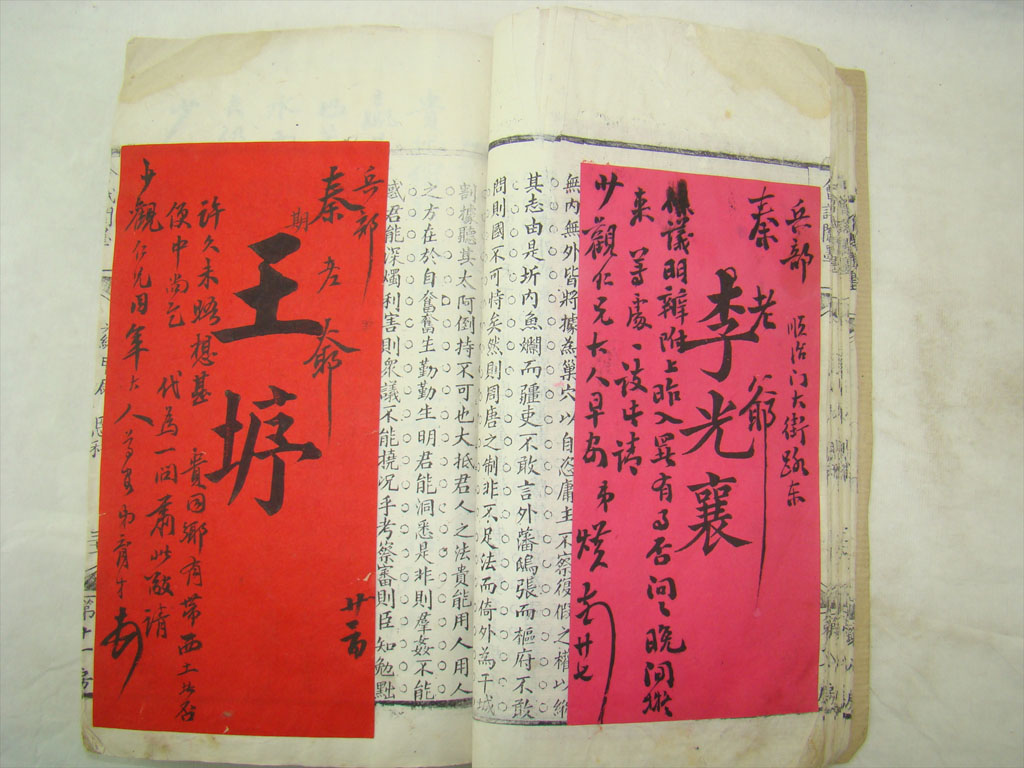 兵部
順治门大街路东
秦老爺
李光襄
議明辦附上昨入署有事否问晚间
来尊處請
少觀仁兄大人早安弟
廿七
無內無外皆將據為巢穴以自恣庸主不察復假之權以縱
其志由是圻內魚爛而疆吏不敢言外藩鴟張而樞府不敢
問則國不可恃矣然則周唐之制非不足法而倚外為干城
割據聽其太阿倒持不可也大抵君人之法貴能用人用人
之方在於自奮奮生勤勤生明君能洞悉是非則羣姦不能
惑君能深燭利害則衆議不能撓况乎考察審則臣知勉黜
兵部
秦老爺
期
王垿
許久未晤想甚
貴同鄉有帶西土者否
便中尚乞代為一问肅此敬請
少觀仁兄同年大人
第十一房